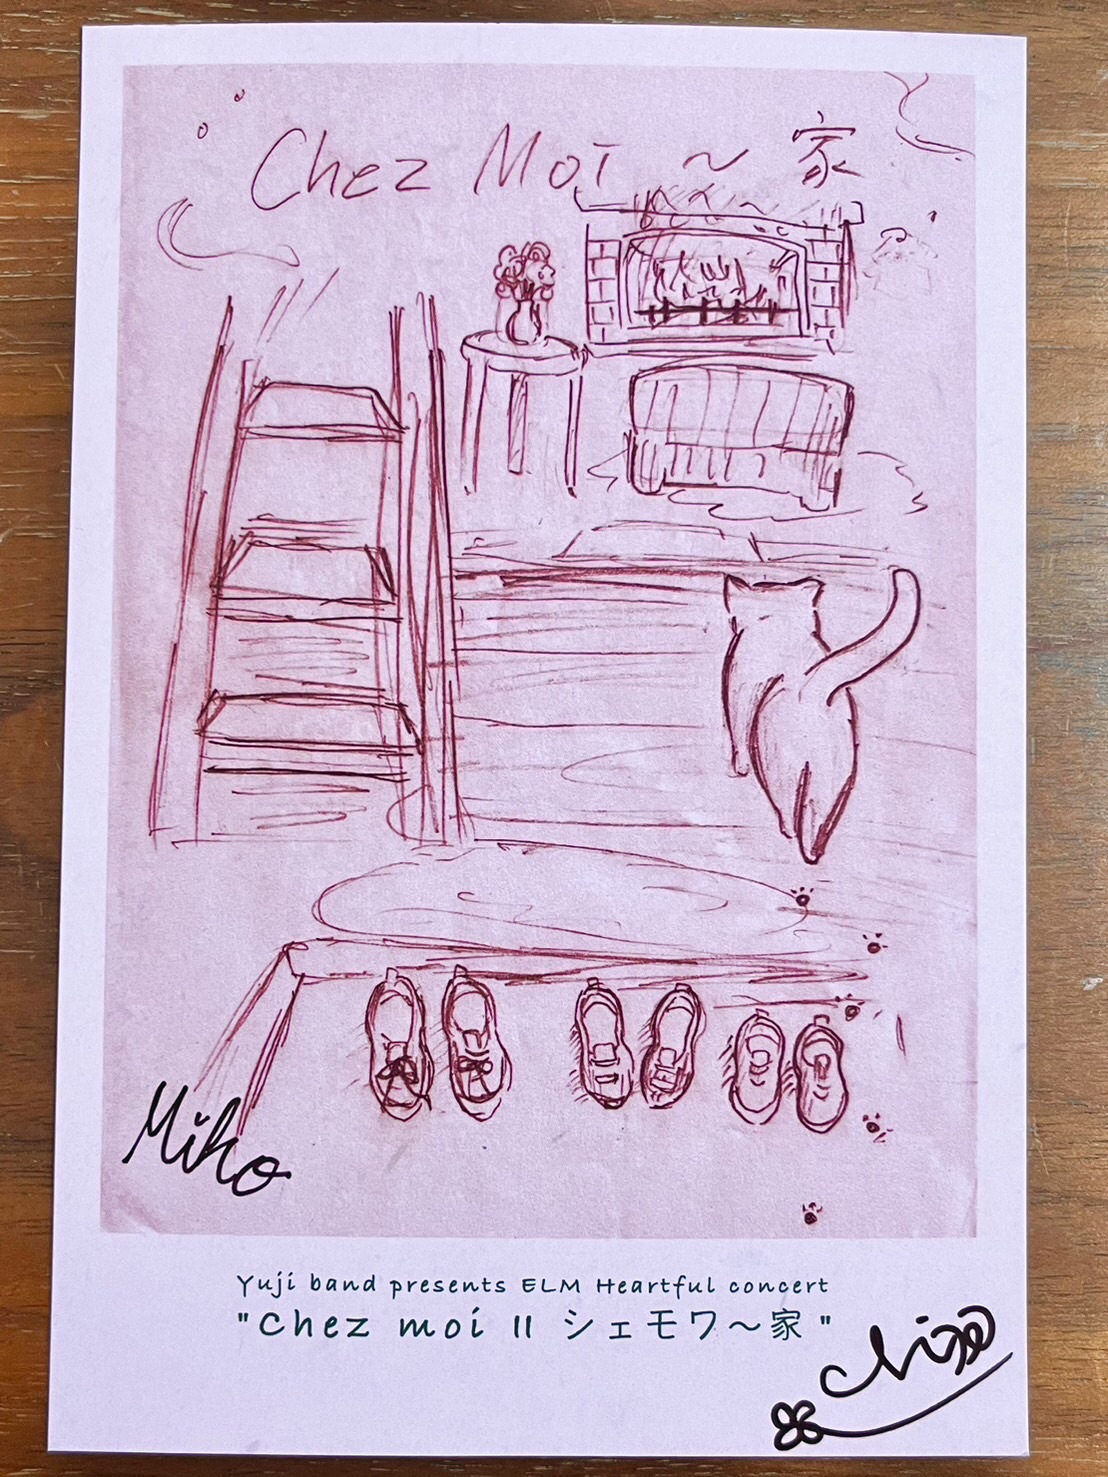 Chez Moi ～ 家
Miho
Yuji band presents ELM Heartful concert
"Chez moi II シェモワ～家"